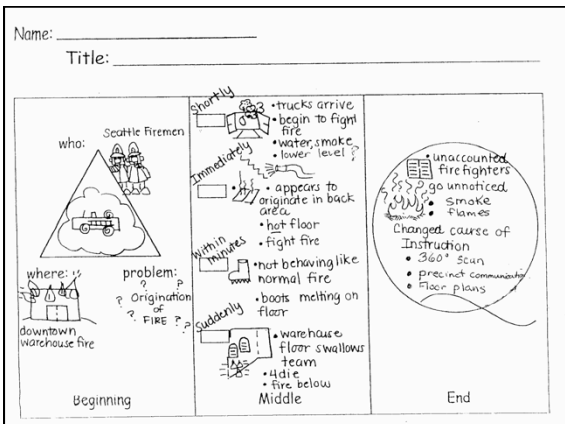 Name:
Title:
Seattle Firemen
who:
where:
problem:
? Origination ?
? of ?
FIRE ?
downtown
warehouse fire
Beginning
Shortly
• trucks arrive
• begin to fight
fire
• water, smoke
• lower level ?
Immediately
• appears to
originate in back
area
• hot floor
• fight fire
within
minutes
• not behaving like
normal fire
• boots melting on
floor
Suddenly
• warehouse
floor swallows
team
• 4 die
• fire below
Middle
• unaccounted
firefighters
go unnoticed
• smoke
• flames
Changed course of
Instruction
• 360° Scan
• precinct communication
• Floor plans
End